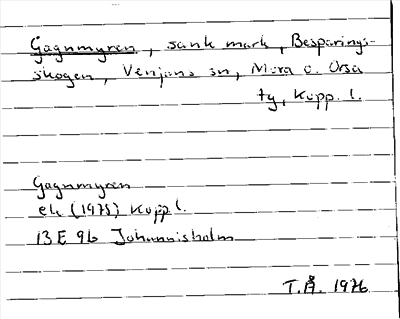 Gagnmyren, sank mark, Besparings-
skogen, Venjans sn, Mora o. Orsa
tg, Kopp. l.
Gagnmyren
ek (1975) Kopp l.
13 E 9b Johannisholm
T.Å. 1976